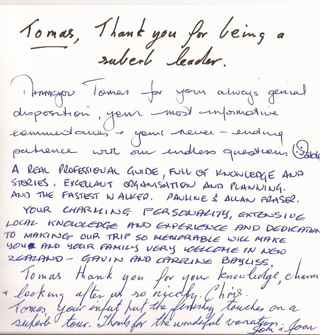 Tomas, Thank you for being a
suberb leader.
Thankyou Tomas for your always genial
disposition, your most informative
commentaries & your never-ending
patience with our endless questions
A REAL PROFESSIONAL GUIDE, FULL OF KNOWLEDGE AND
STORIES. EXCELLANT ORGANISATION AND PLANNING.
AND THE FASTEST WALKER. PAULINE & ALLAN FRASER.
YOUR CHARMING PERSONALITY, EXTENSIVE
LOCAL KNOWLEDGE AND EXPERIENCE AND DEDICATION
TO MAKING OUR TRIP SO MEMORABLE WILL MAKE
YOU AND YOUR FAMILY VERY WELCOME IN NEW
ZEALAND - GAVIN AND BAYLISS.
Tomas thank you for your knowledge, charm
& looking after us so nicely. Chris.
Tomas, your input put the finishing touches on a
superb tour. Thanks for the wonderful vacation.
& Joan